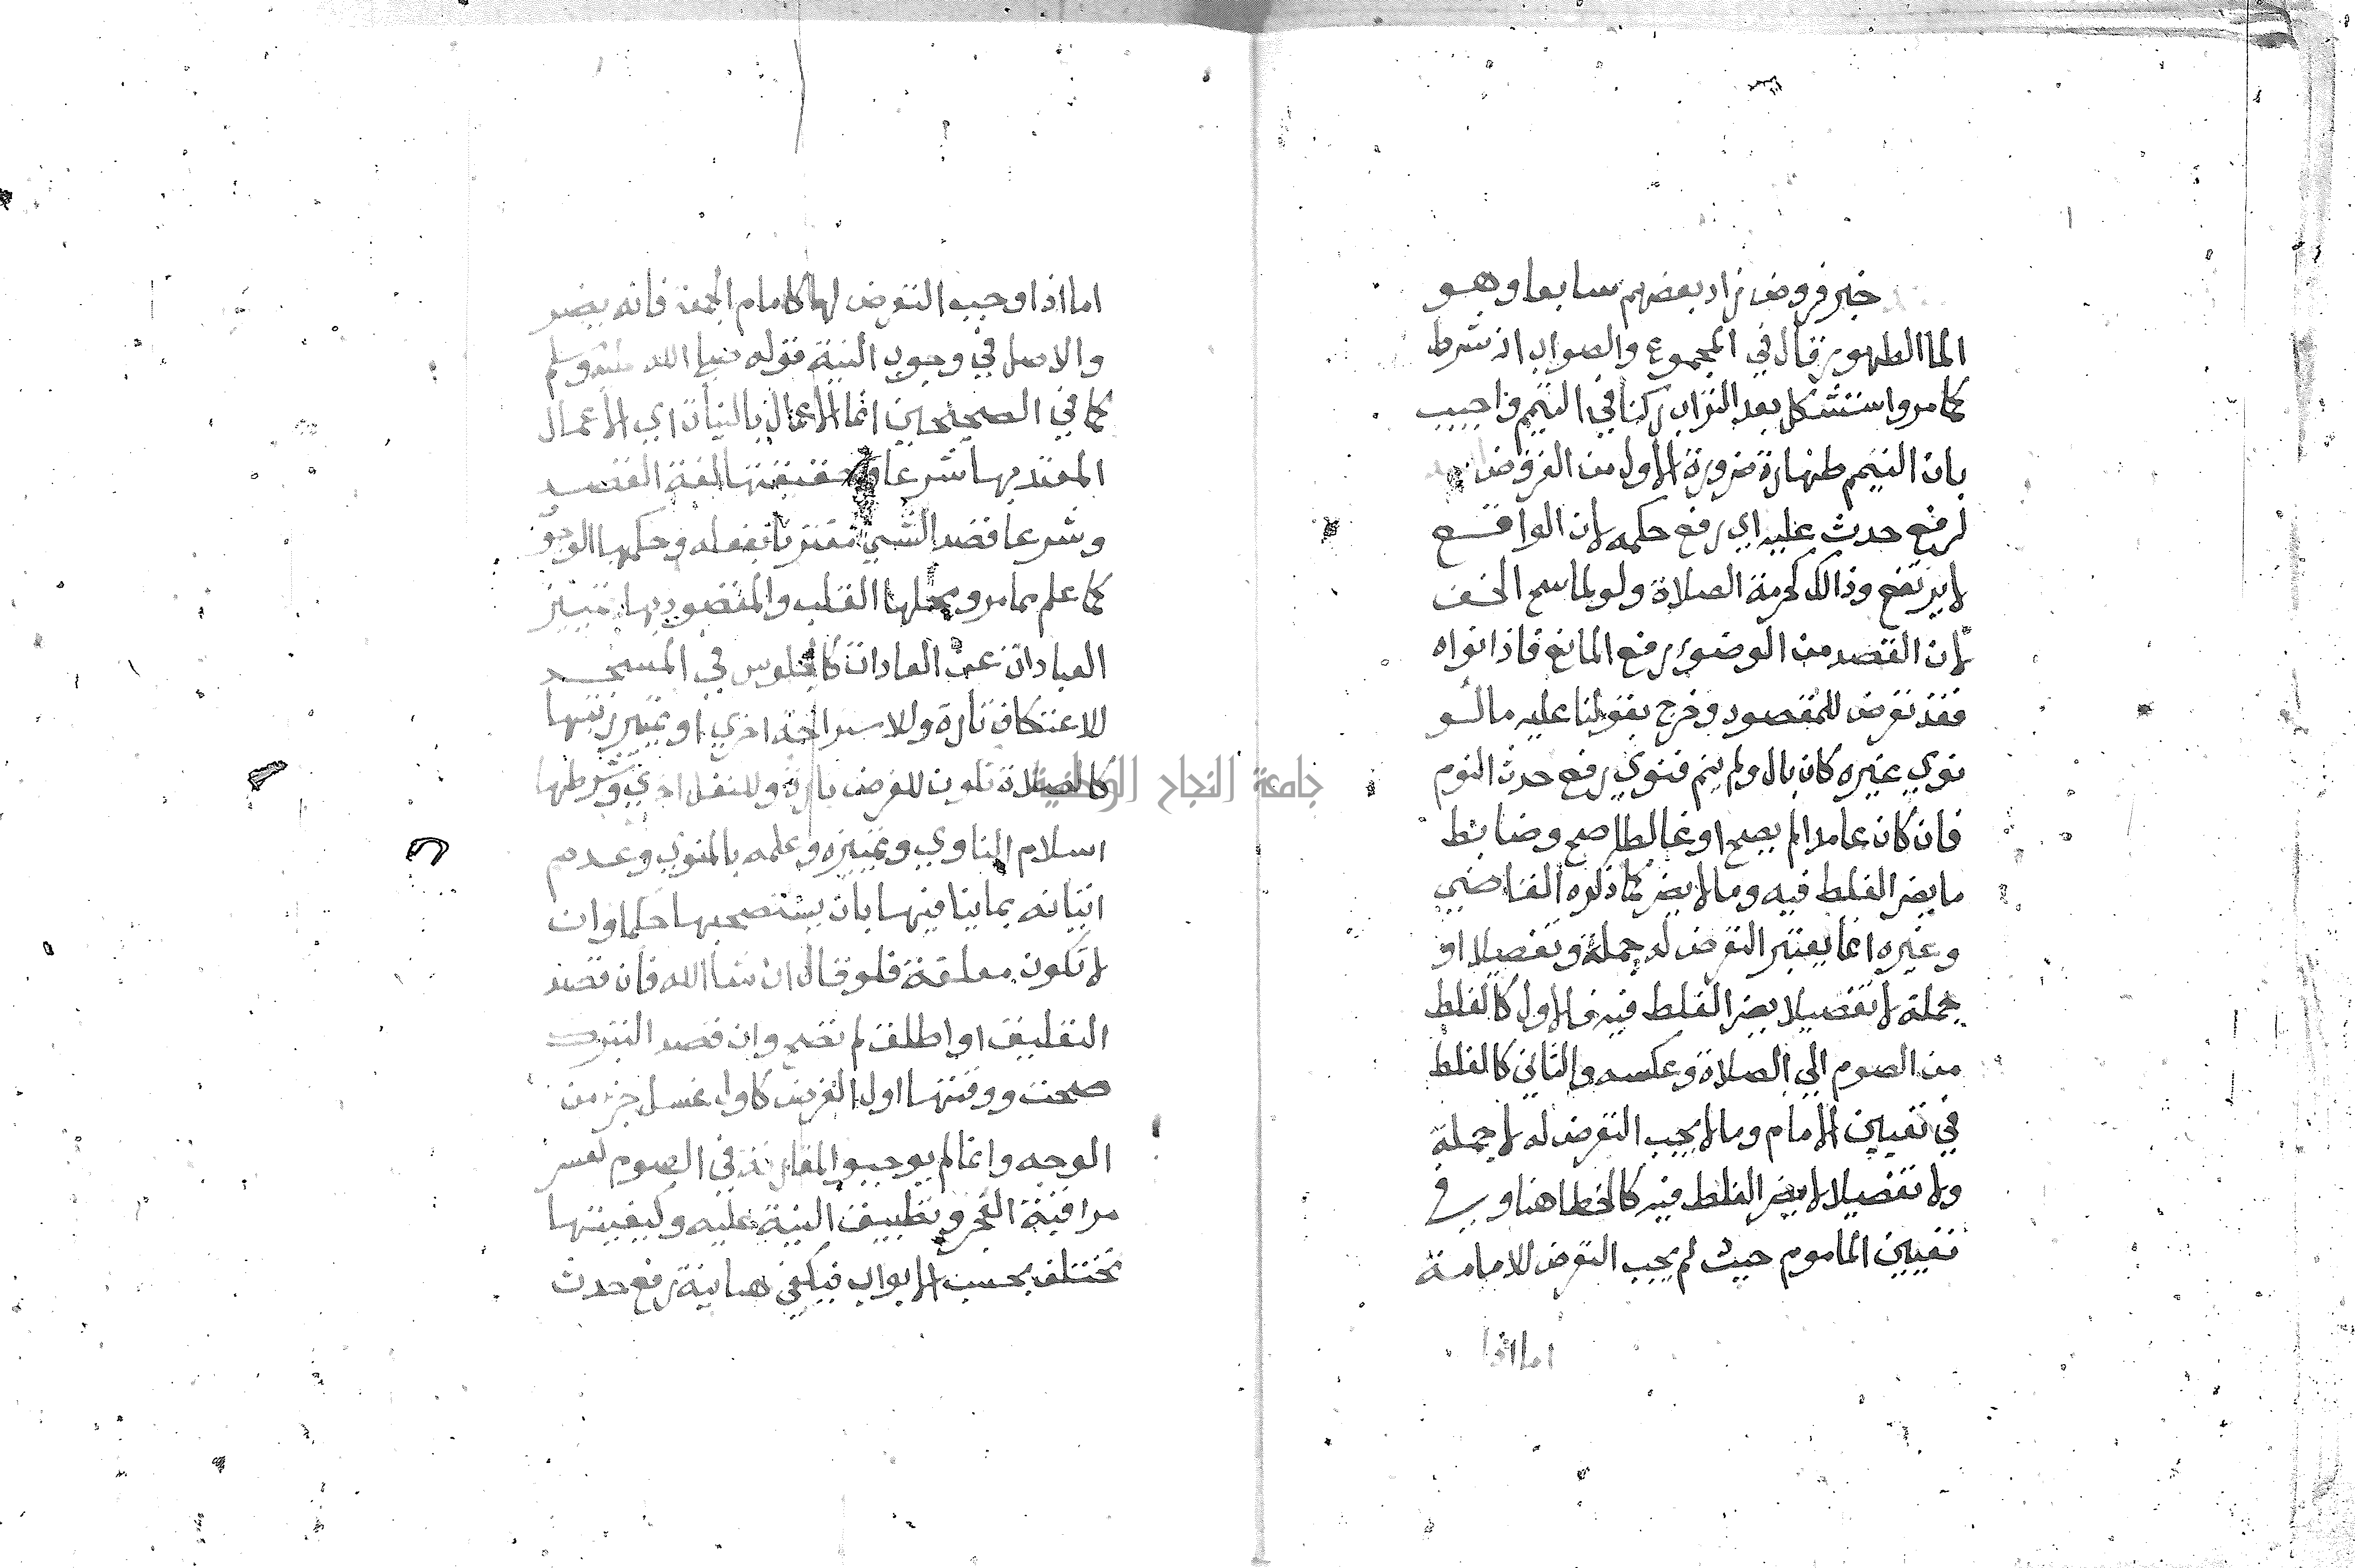 خبر فروض زاد بعضهم سابعا وهو
الما الطهور قال في المجموع والصواب انه شرط
كما مر واستشكل بعد التراب ركنا في التيمم واجيب
بان التيمم طهارة ضرورة الاول من الفروض
لرفع حدث عليه اي رفع حكمه لان الواقع
لا يرتفع وذالك لحرمة الصلاة ولو لماسح الخف
لان القصد من الوضوء رفع المانع فاذا نواه
فقد تعرض للمقصود وخرج بقولنا عليه ما لو
نوي غيره كان بال ولم ينم فنوي رفع حدث النوم
فان كان عامدا لم يصح او غالطا صح وضابط
ما يضر الغلط فيه وما لا يضر كما ذكره القاضي
وغيره انما يعتبر التعرض له جملة وتفصيلا او
جملة لا تفصيلا يضر الغلط فيه فالاول كالغلط
من الصوم الي الصلاة وعكسه والثاني كالغلط
في تعيين الامام وما لا يجب التعرض له لا جملة
ولا تفصيلا لا يضر الغلط فيه كالخطا هنا وفي
تعيين الماموم حيث لم يجب التعرض للامامة
اما اذا
اما اذا وجب التعرض لها كامام الجمعة فانه يضر
والاصل في وجوب النية قوله صلي الله عليه وسلم
كما في الصحيحين انما الاعمال بالنيات اي الاعمال
المعتد بها شرعا وحقيقتها لغة القصد
وشرعا قصد الشي مقترنا بفعله وحكمها الوجوب
كما علم مما مر ومحلها القلب والمقصود بها تمييز
العبادات عن العادات كالجلوس في المسجد
للاعتكاف تارة وللاستراحة اخري او تمييز رتبها
كالصلاة تكون للفرض تارة وللنفل اخري وشرطها
اسلام الناوي وتمييزه وعلمه بالمنوي وعدم
اتيانه بما ينافيها بان يستصحبها حكما وان
لا تكون معلقة فلو قال ان شا الله فان قصد
التعليق او اطلق لم تصح وان قصد التبرك
صحت ووقتها اول الفرض كاول غسل جز من
الوجه وانما لم يوجبوا المقارنة في الصوم لعسر
مراقبة الفجر وتطبيق النية عليه وكيفيتها
تختلف بحسب الابواب فيكفي هنا نية رفع حدث
جامعة النجاح الوطنية